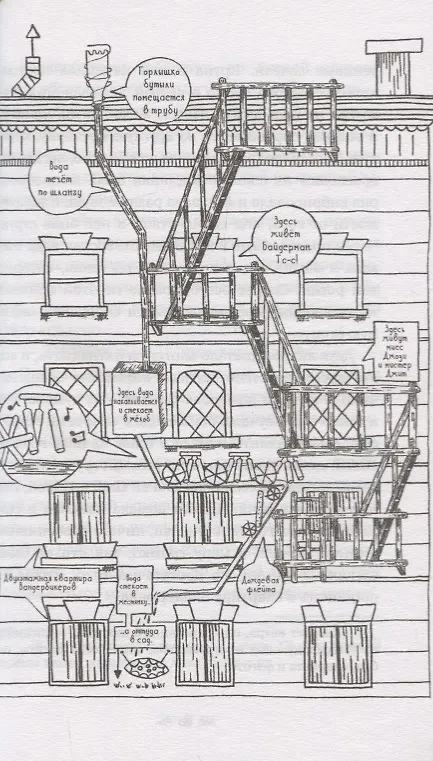 Горлышко
бутыли
помещается
в трубу
Вода
течёт
по шлангу
Здесь
живёт
Байдерман.
Тс-с!
Здесь
живут
мисс
Джози
и мистер
Джит
Здесь вода
накапливается
и стекает
в жёлоб
Двухэтажная квартира
Вандербикеров
Вода
стекает
в
...а оттуда
в сад.
Дождевая
флейта